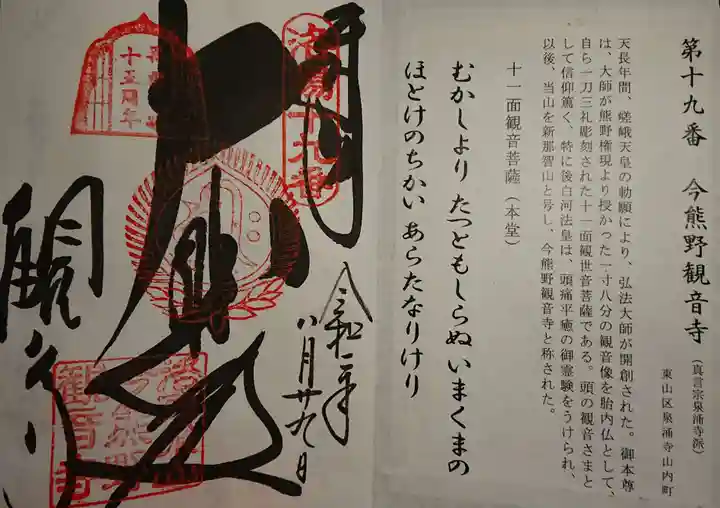 第十九番 今熊野観音寺(真言宗泉涌寺派)
東山区泉涌寺山内町
天長年間、嵯峨天皇の勅願により、弘法大師が開創された。御本尊
は、大師が熊野権現より授かった一寸八分の観音像を胎内仏として、
自ら一刀三礼彫刻された十一面観世音菩薩である。頭の観音さまと
して信仰篤く、特に後白河法皇は、頭痛平癒の御霊験をうけられ、
以後、当山を新那智山と号し、今熊野観音寺と称された。
十一面観音菩薩(本堂)
むかしより たつともしらぬ いまくまの
ほとけのちかい あらたなりけり
令和二年
八月廿九日
洛陽十九番
十五周年
観音寺